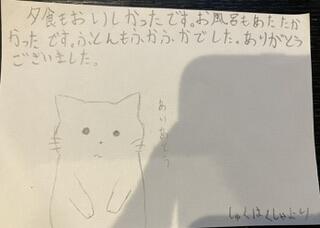 夕食もおいしかったです。お風呂もあたたか
かったです。ふとんもふかふかでした。ありがとう
ございました。
ありがとう
しゅくはくしゃより